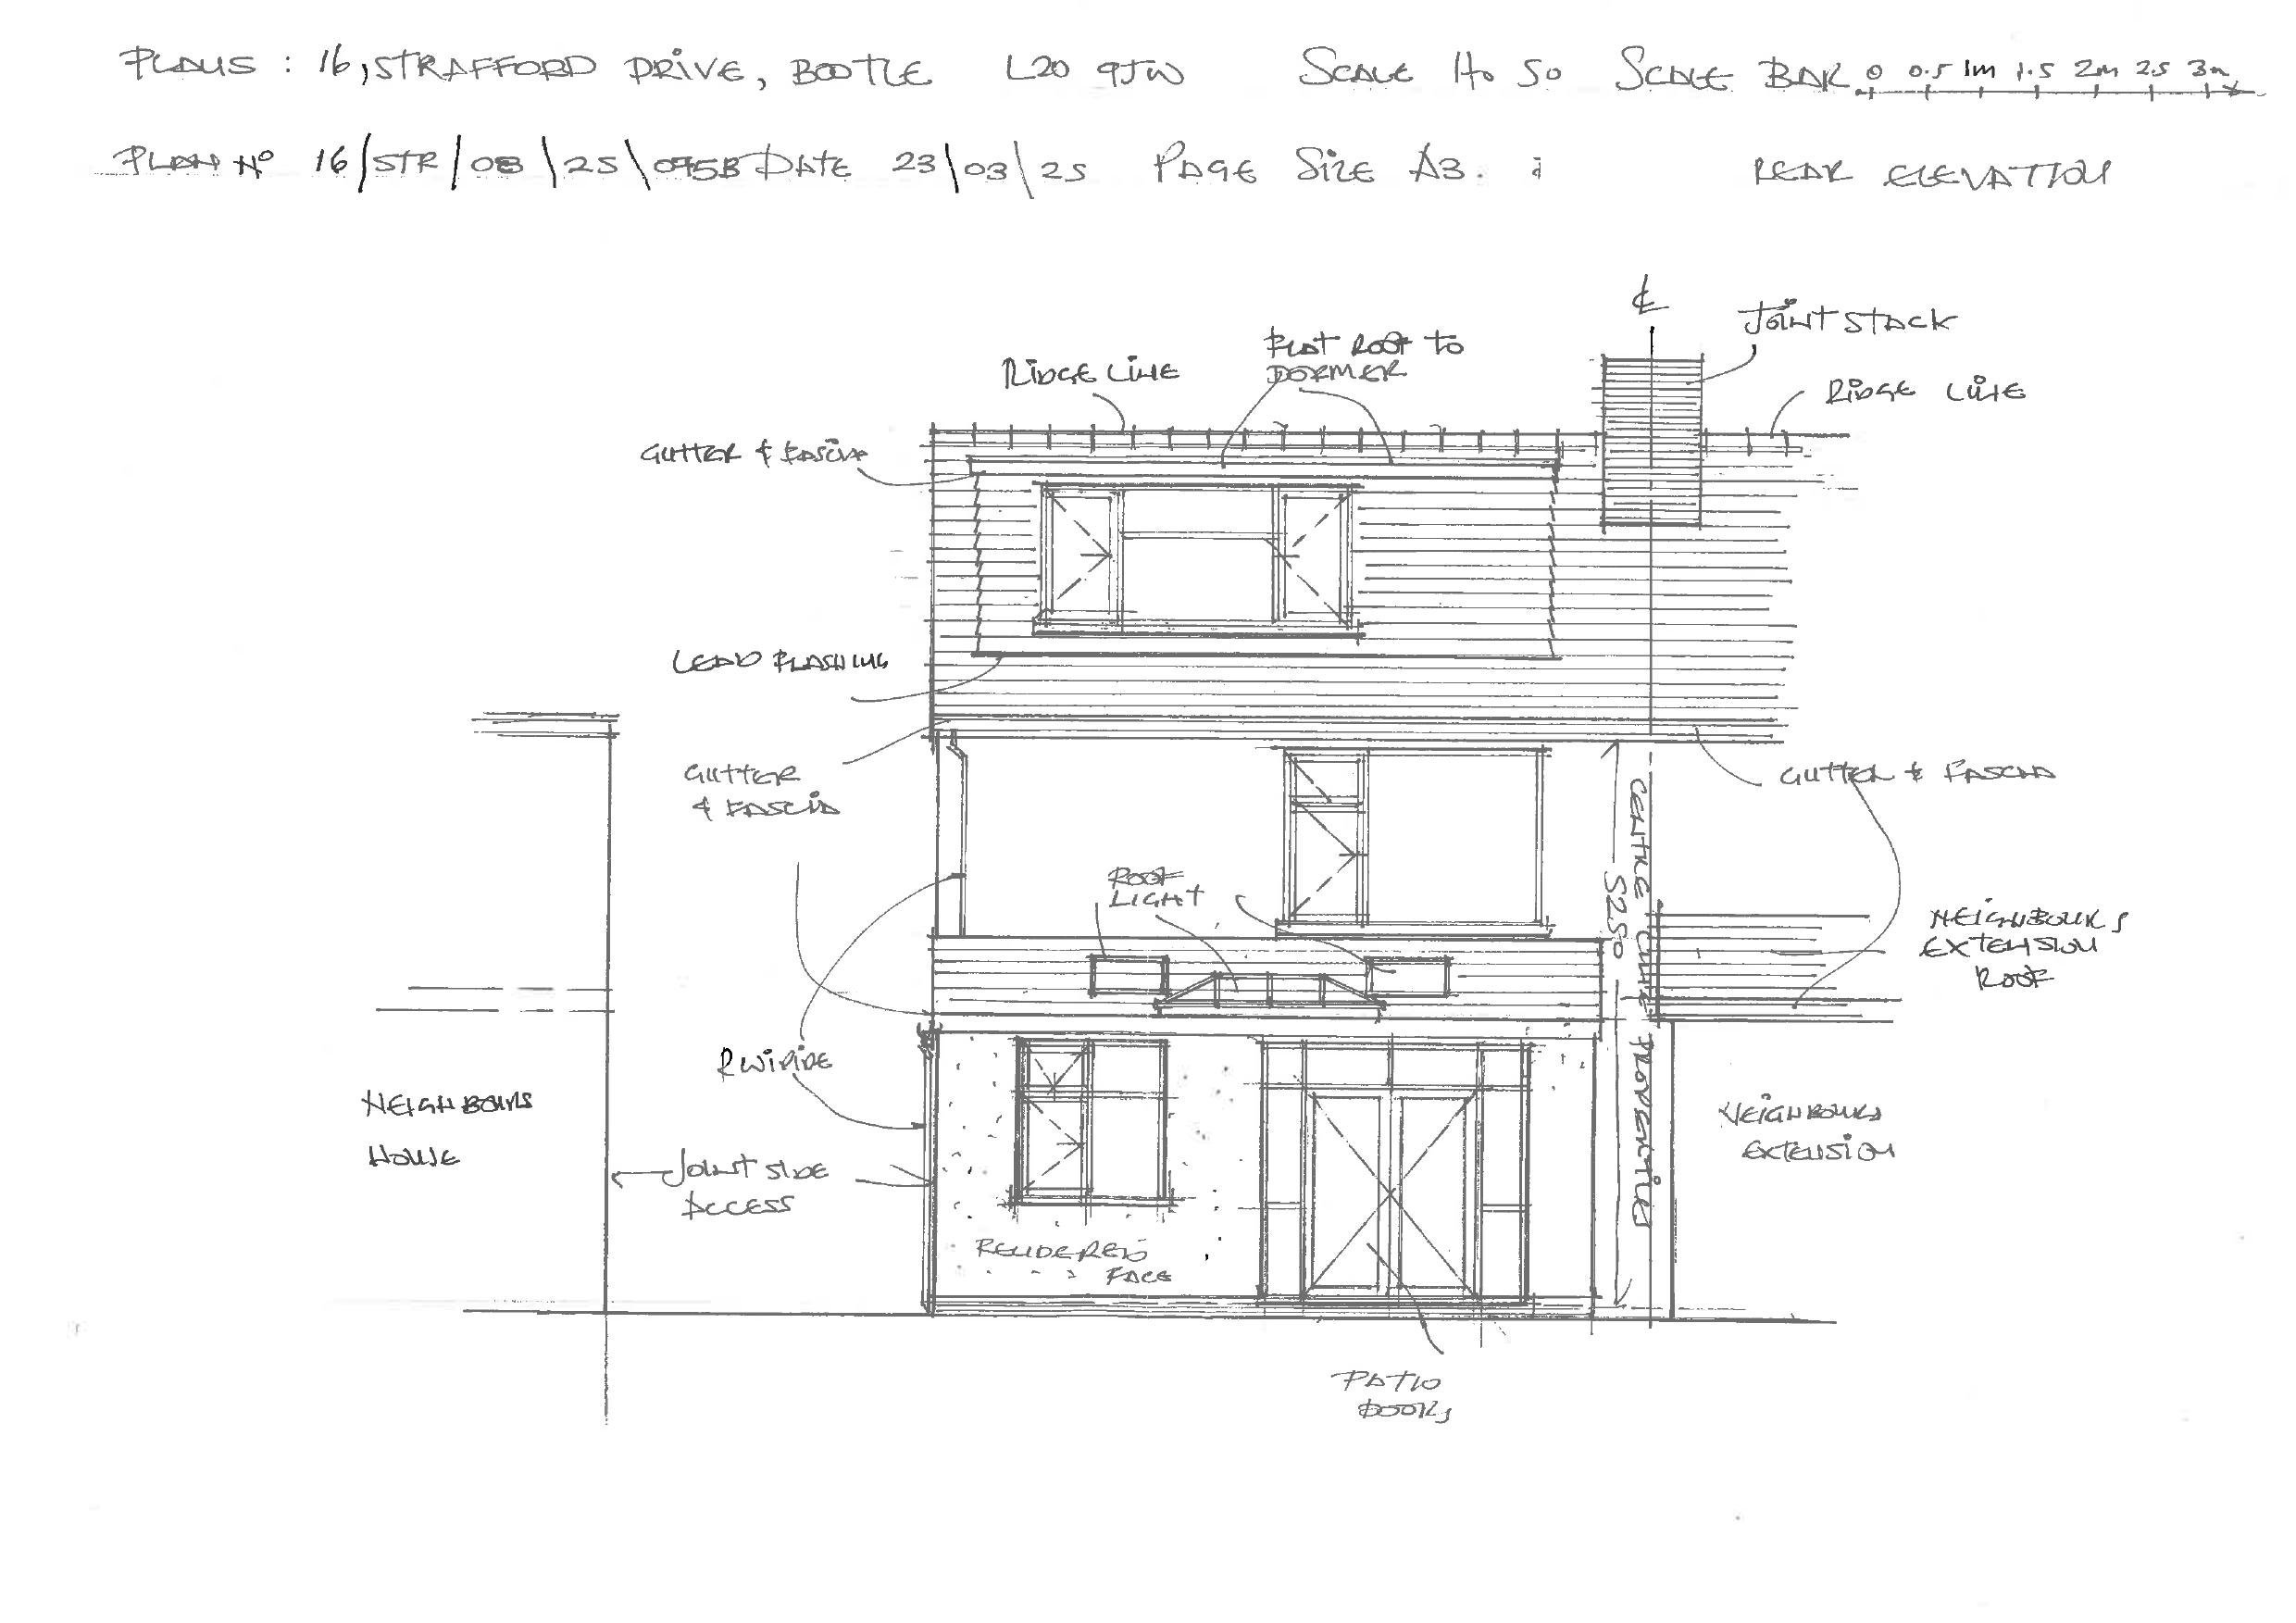 PLANS : 16, STRAFFORD DRIVE, BOOTLE L20 9JW SCALE 1 to 50 SCALE BAR 0 0.5 1m 1.5 2m 2.5 3m
PLAN No 16/STR/08\25\095B DATE 23/03\25 PAGE SIZE A3. : REAR ELEVATION
℄
JOINT STACK
RIDGE LINE
FLAT ROOF TO
DORMER
RIDGE LINE
GUTTER & FASCIA
LEAD FLASHING
GUTTER
& FASCIA
GUTTER & FASCIA
CENTRE LINE PROPERTIES
5250
ROOF
LIGHT
NEIGHBOURS
EXTENSION
ROOF
RWPIPE
NEIGHBOURS
HOUSE
NEIGHBOURS
EXTENSION
JOINT SIDE
ACCESS
RENDERED
FACE
PATIO
DOORS